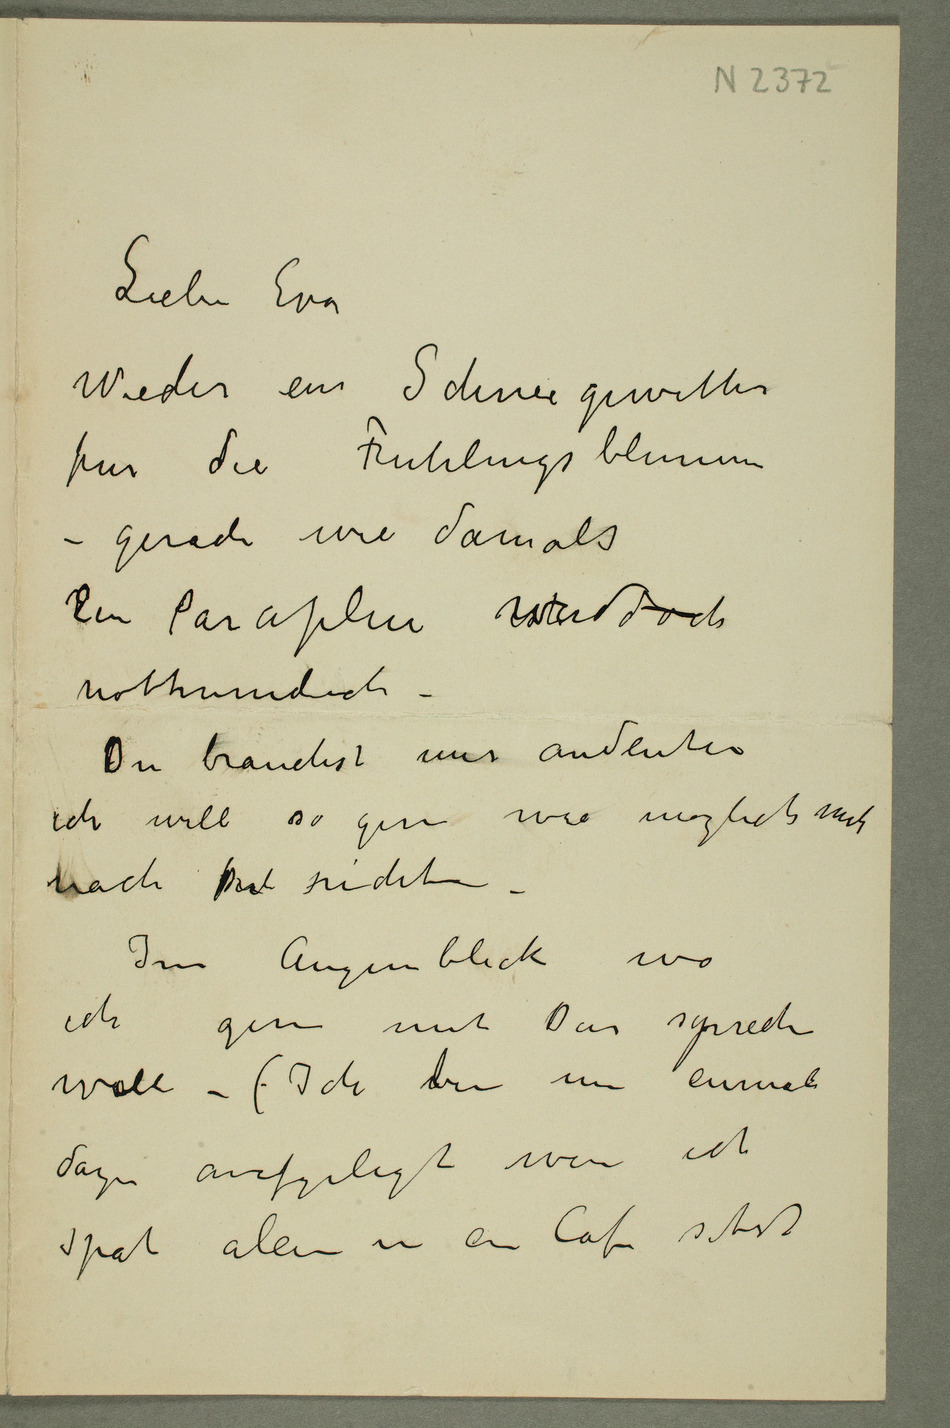 N 2372
Liebe Eva
Wieder ein Schneegewitter
fur die Fruhlingsblumen
– gerade wie damals
Ein Paraplui doch
nothwendich –
Du brauchst nur andeuten
ich will so gern wie moglich mich
nach Dir richten –
Im Augenblick wo
ich gern mit Dir sprechen
will – (Ich bin nur einmal
dazu aufgelegt wen ich
spat allein in ein Cafe